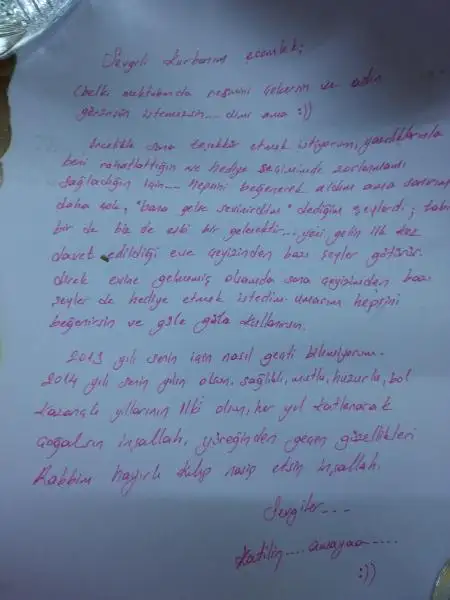 Sevgili kurbanım ecemlek;
(belki mektubumda resmini çekerim ve adın
görünsün istemezsin... dimi ama :))
Öncelikle sana teşekkür etmek istiyorum, yazdıklarınla
beni rahatlattığın ve hediye seçiminde zorlanmamı
sağladığın için... hepsini beğenerek aldım ama sanırım
daha çok, "bana gelse sevinirdim" dediğim şeylerdi; tabi
bir de biz de eski bir gelenektir... yeni gelin ilk kez
davet edildiği eve çeyizinden bazı şeyler götürür.
direk evine gelmemiş olsamda sana çeyizimden bazı
şeyler de hediye etmek istedim. umarım hepsini
beğenirsin ve güle güle kullanırsın.
2013 yılı senin için nasıl geçti bilemiyorum.
2014 yılı senin yılın olsun. sağlıklı, mutlu, huzurlu, bol
kazançlı yıllarının ilki olsun, her yıl katlanarak
çoğalsın inşallah, yüreğinden geçen güzellikleri
Rabbim hayırlı kılıp nasip etsin inşallah.
Sevgiler...
Katilin....
:))